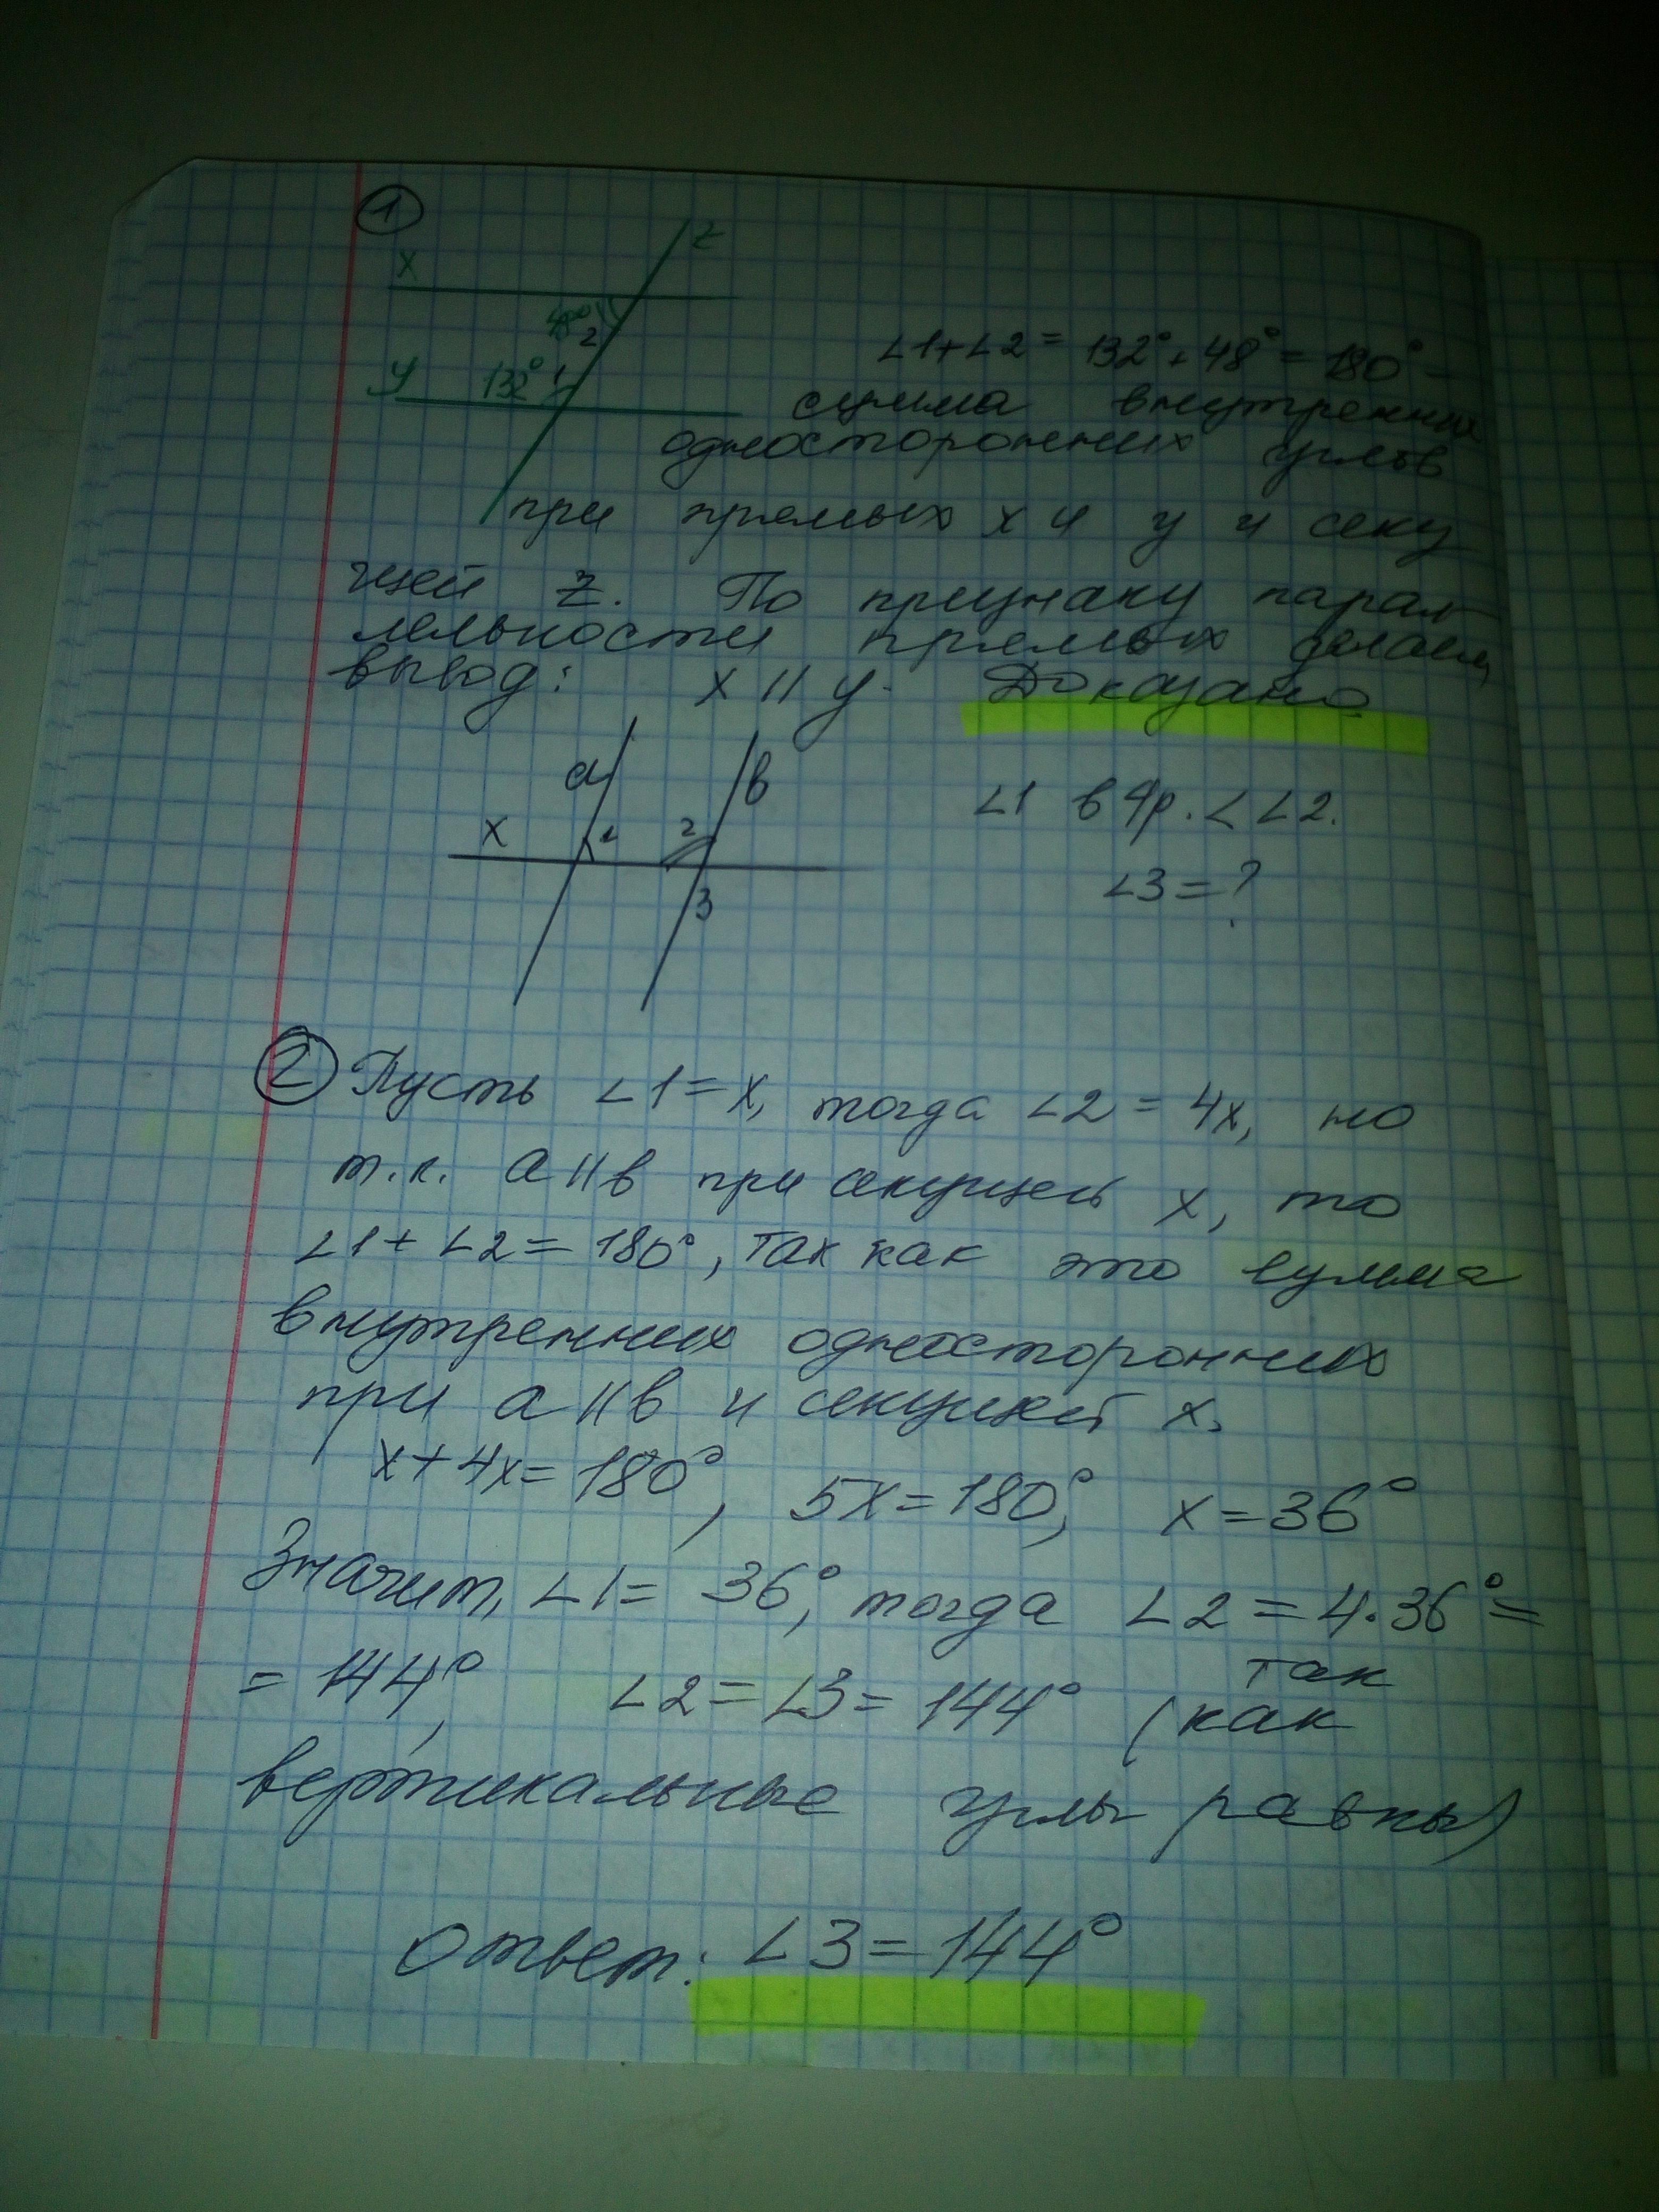 1
x
z
48° 2
y 132° 1
∠1+∠2 = 132°+48° = 180° -
сумма внутренних
односторонних углов
при прямых x и y и секу
щей z. По признаку парал-
лельности прямых делаем
вывод: x || y. Доказано
a
в
x 1 2
3
∠1 в 4р. < ∠2.
∠3=?
2 Пусть ∠1=x, тогда ∠2 = 4x, но
т.к. a||в при секущей x, то
∠1+∠2=180°, так как это сумма
внутренних односторонних
при a||в и секущей x.
x+4x=180°, 5x=180°, x=36°
Значит, ∠1= 36°, тогда ∠2=4·36°=
=144°, ∠2=∠3=144° (так как
вертикальные углы равны)
Ответ: ∠3=144°